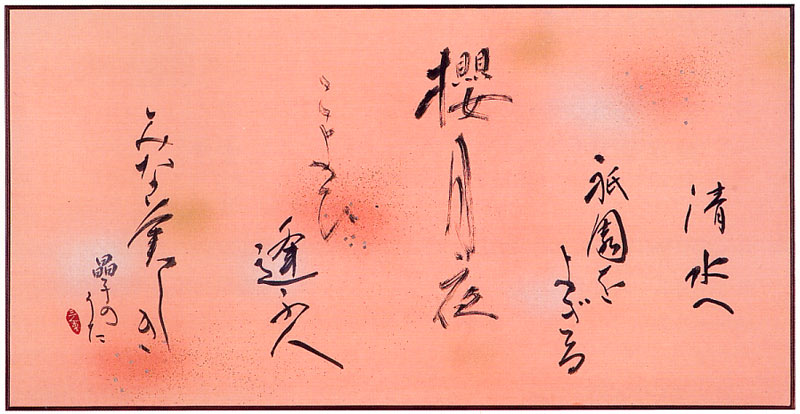 清水へ
祇園を
よぎる
櫻月夜
こよひ
逢ふ人
みなうつくしき
晶子の
うた